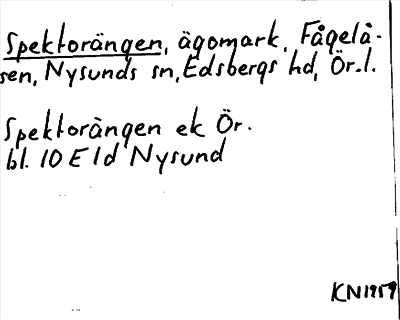 Spektorängen, ägomark, Fågelå-
sen, Nysunds sn, Edsbergs hd, Ör. l.
Spektorängen ek Ör.
bl. 10 E 1d Nysund
KN 1959